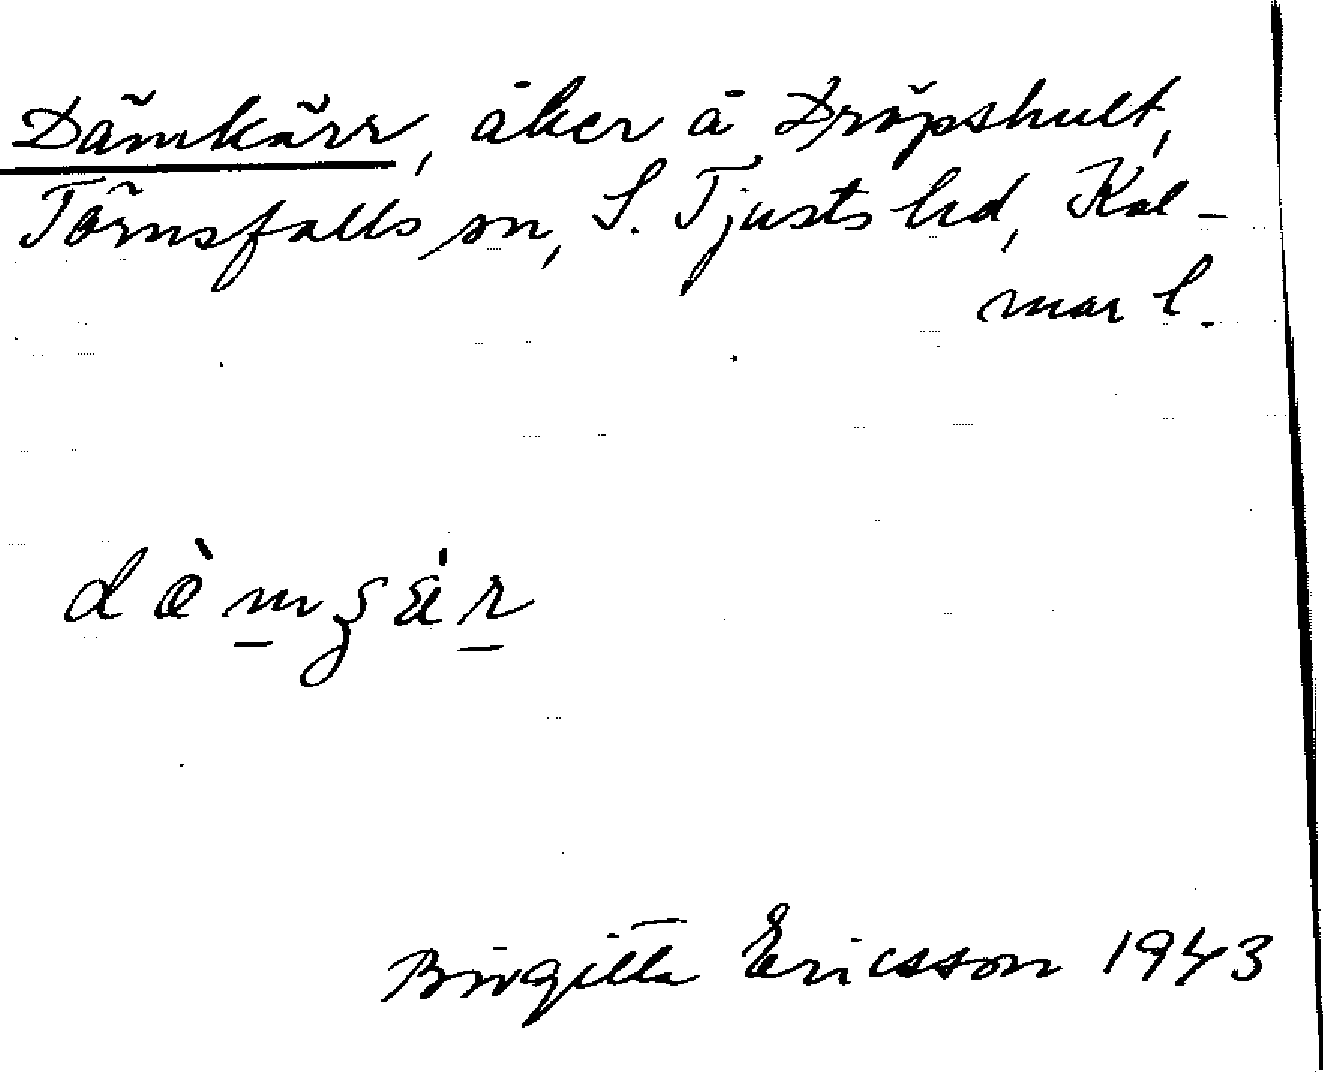 Dämkärr, åker å Dröpshult,
Törnsfalls sn, S. Tjusts hd, Kal-
mar l.
Birgitta Ericsson 1943